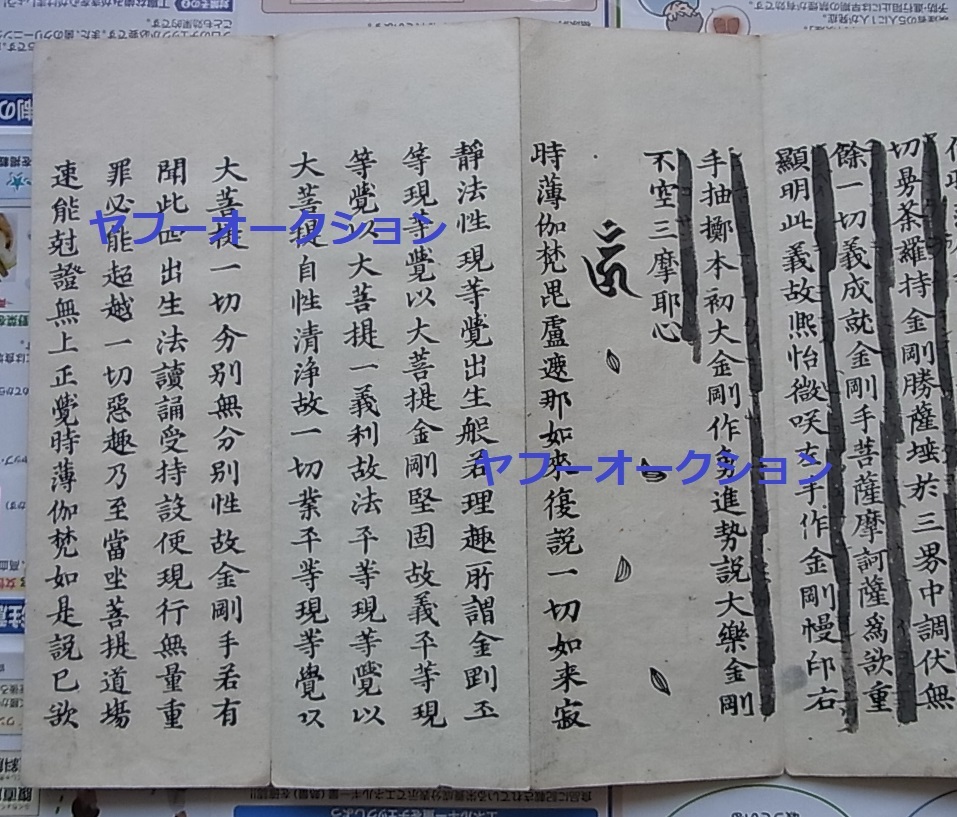 切曼荼羅持金剛勝薩埵於三界中調伏無
餘一切義成就金剛手菩薩摩訶薩爲欲重
顯明此義故熈怡微咲左手作金剛慢印右
手抽擲本初大金剛作勇進勢説大樂金剛
不空三摩耶心
時薄伽梵毘盧遮那如來復説一切如来寂
靜法性現等覺出生般若理趣所謂金剛平
等現等覺以大菩提金剛堅固故義平等現
等覺以大菩提一義利故法平等現等覺以
大菩提自性清浄故一切業平等現等覺以
大菩提一切分別無分別性故金剛手若有
聞此四出生法讀誦受持設使現行無量重
罪必能超越一切惡趣乃至當坐菩提道場
速能尅證無上正覺時薄伽梵如是説已欲
ヤフーオークション
ヤフーオークション